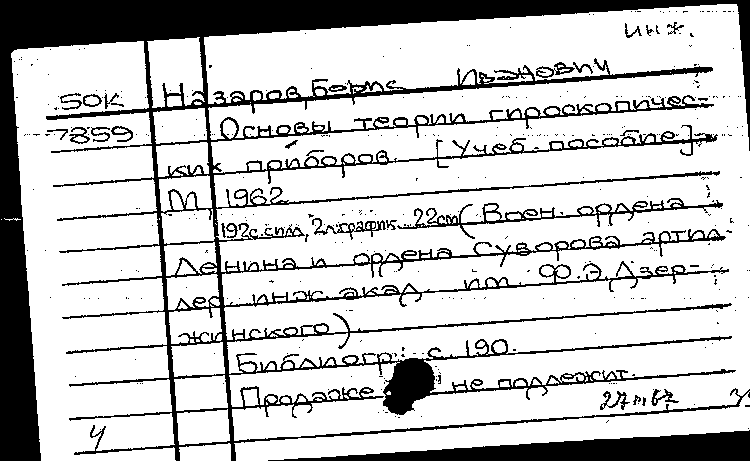 инж.
50К Назаров, Борис Иванович
7859 Основы теории гироскопичес=
ких приборов. [Учеб. пособие].
М, 1962
192с. с илл, 2л. график. 22см (Воен. ордена
Ленина и ордена Суворова артил-
лер. инж. акад. им. Ф.Э. Дзер=
жинского).
Библиогр.: с. 190.
Продаже не подлежит.
4